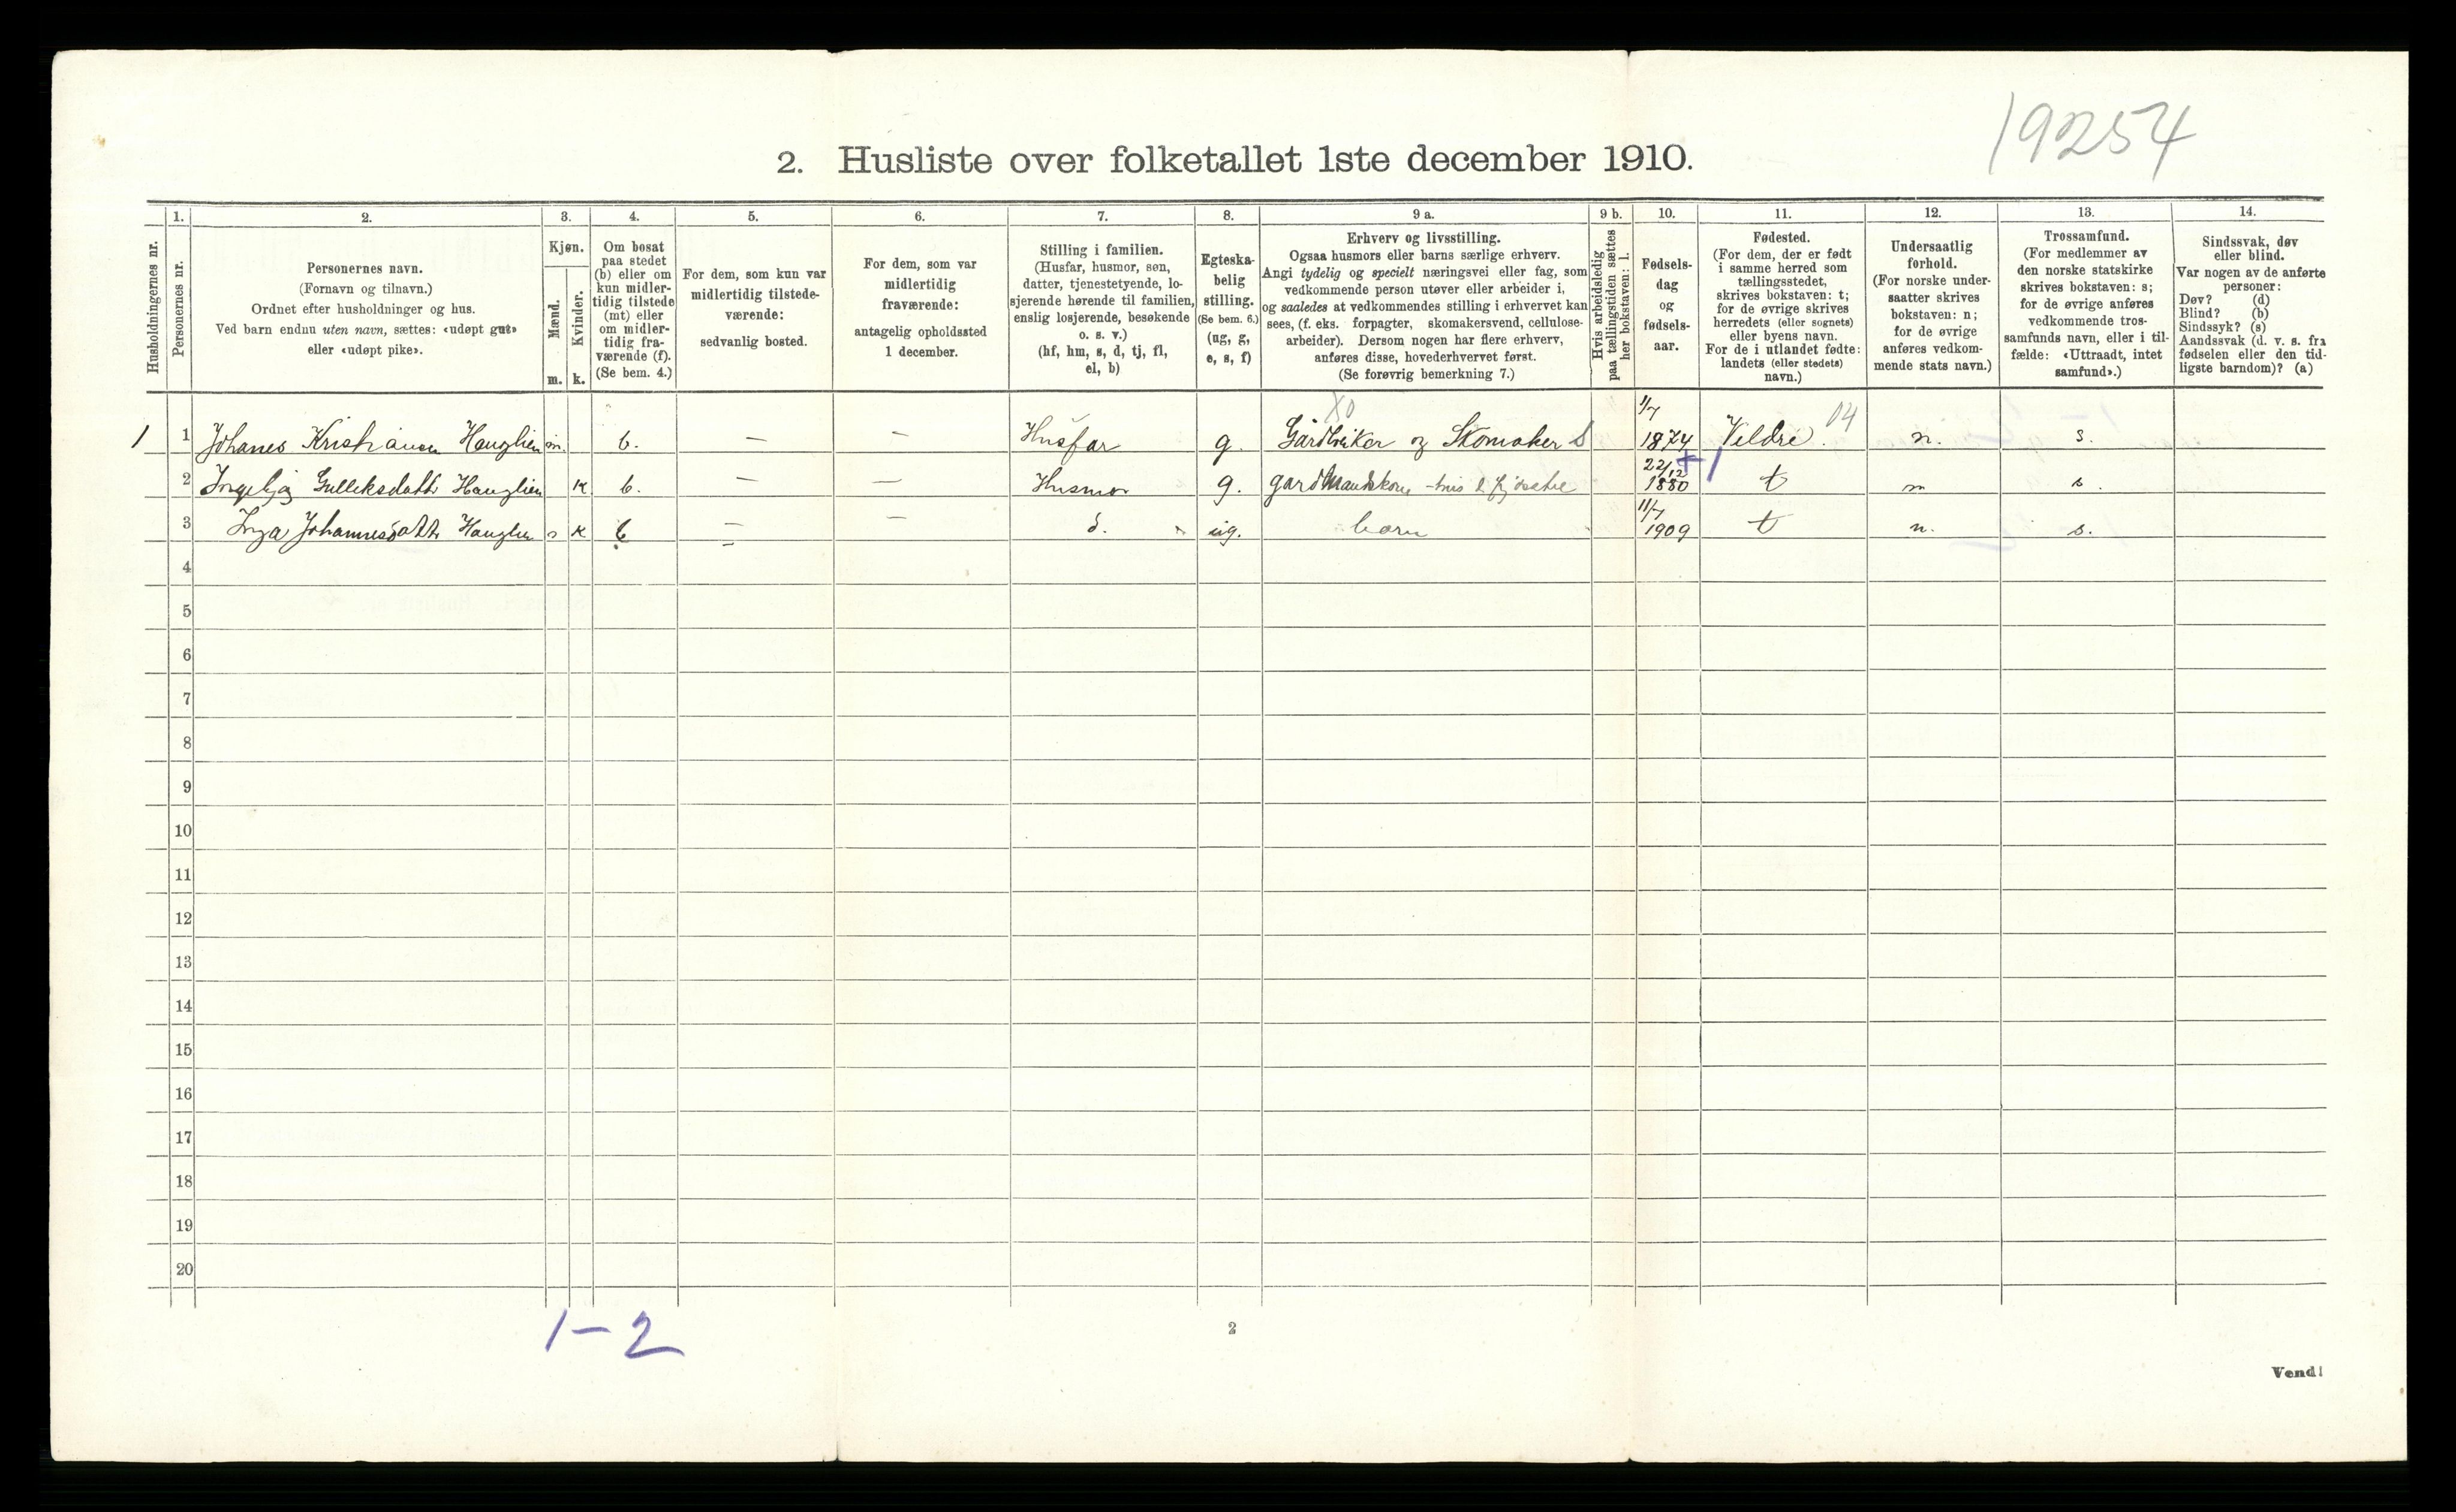 19254
2. Husliste over folketallet 1ste december 1910.
1. 2. 3. 4. 5. 6. 7. 8. 9 a. 9 b. 10. 11. 12. 13. 14.
Husholdningernes nr.
Personernes nr.
Personernes navn.
(Fornavn og tilnavn.)
Ordnet efter husholdninger og hus.
Ved barn endnu uten navn, sættes: «udøpt gut»
eller «udøpt pike».
Kjøn.
Mænd.
Kvinder.
m. k.
Om bosat
paa stedet
(b) eller om
kun midler-
tidig tilstede
(mt) eller
om midler-
tidig fra-
værende (f).
(Se bem. 4.)
For dem, som kun var
midlertidig tilstede-
værende:
sedvanlig bosted.
For dem, som var
midlertidig
fraværende:
antagelig opholdssted
1 december.
Stilling i familien.
(Husfar, husmor, søn,
datter, tjenestetyende, lo-
sjerende hørende til familien,
enslig losjerende, besøkende
o. s. v.)
(hf, hm, s, d, tj, fl,
el, b)
Egteska-
belig
stilling.
(Se bem. 6.)
(ug, g,
e, s, f)
Erhverv og livsstilling.
Ogsaa husmors eller barns særlige erhverv.
Angi tydelig og specielt næringsvei eller fag, som
vedkommende person utøver eller arbeider i,
og saaledes at vedkommendes stilling i erhvervet kan
sees, (f. eks. forpagter, skomakersvend, cellulose-
arbeider). Dersom nogen har flere erhverv,
anføres disse, hovederhvervet først.
(Se forøvrig bemerkning 7.)
Hvis arbeidsledig
paa tællingstiden sættes
her bokstaven: l.
Fødsels-
dag
og
fødsels-
aar.
Fødested.
(For dem, der er født
i samme herred som
tællingsstedet,
skrives bokstaven: t;
for de øvrige skrives
herredets (eller sognets)
eller byens navn.
For de i utlandet fødte:
landets (eller stedets)
navn.)
Undersaatlig
forhold.
(For norske under-
saatter skrives
bokstaven: n;
for de øvrige
anføres vedkom-
mende stats navn.)
Trossamfund.
(For medlemmer av
den norske statskirke
skrives bokstaven: s;
for de øvrige anføres
vedkommende tros-
samfunds navn, eller i til-
fælde: «Uttraadt, intet
samfund».)
Sindssvak, døv
eller blind.
Var nogen av de anførte
personer:
Døv? (d)
Blind? (b)
Sindssyk? (s)
Aandssvak (d. v. s. fra
fødselen eller den tid-
ligste barndom)? (a)
1 1 Johanes Kristiansen Hauglien m. b. — — Husfar g. Gårdbruker og Skomaker S 1/7 1874 Veldre. 04 n. s.
2 Ingebjø Gulleksdatt Hauglien K b. — — Husmor g. gardmandskone 22/12 1880 +1 t n s.
3 Inga Johannesdatt Hauglien K b — — d. ug. barn 11/7 1909 t n. s.
4
5
6
7
8
9
10
11
12
13
14
15
16
17
18
19
20
1-2
2
Vend!